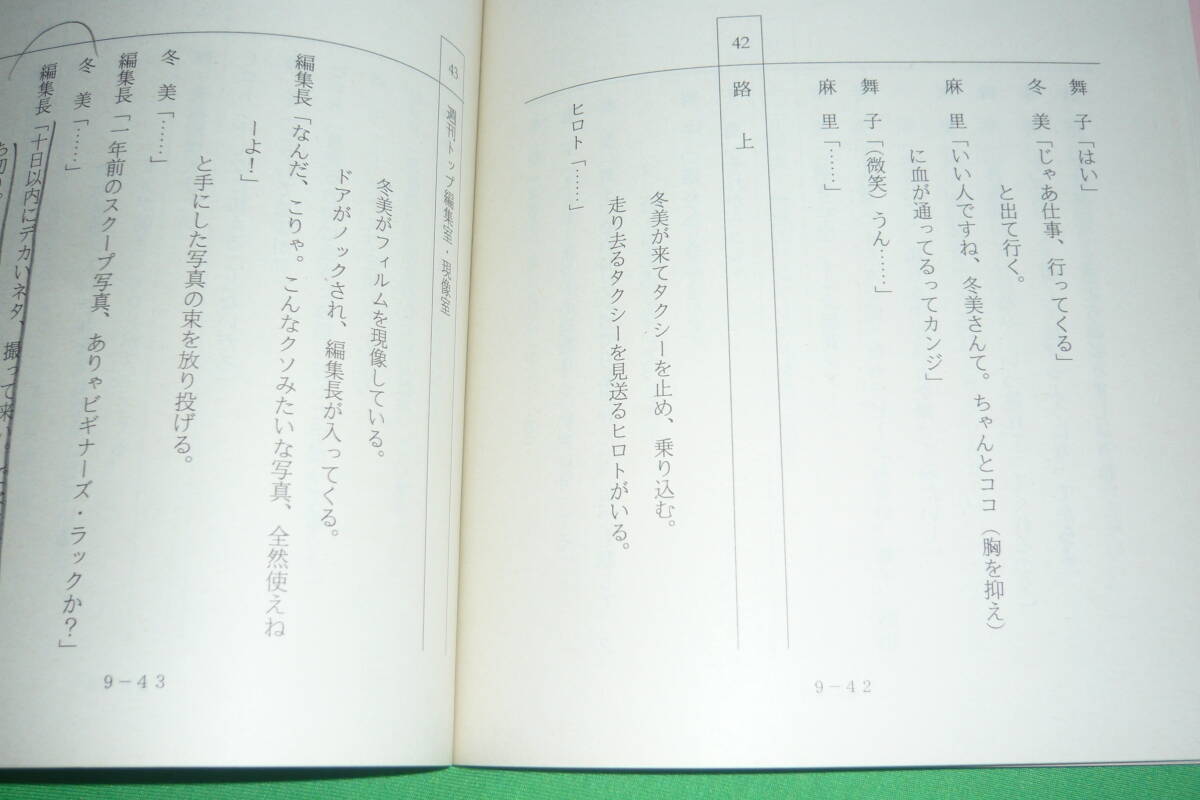 舞 子「はい」
冬 美「じゃあ仕事、行ってくる」
と出て行く。
麻 里「いい人ですね、冬美さんて。ちゃんとココ（胸を抑え）
に血が通ってるってカンジ」
舞 子「（微笑）うん……」
麻 里「……」
42 路 上
冬美が来てタクシーを止め、乗り込む。
走り去るタクシーを見送るヒロトがいる。
ヒロト「……」
9－42
43 週刊トップ編集室・現像室
冬美がフィルムを現像している。
ドアがノックされ、編集長が入ってくる。
編集長「なんだ、こりゃ。こんなクソみたいな写真、全然使えね
ーよ！」
と手にした写真の束を放り投げる。
冬 美「……」
編集長「一年前のスクープ写真、ありゃビギナーズ・ラックか？」
冬 美「……」
編集長「十日以内にデカいネタ、撮って来い
9－43